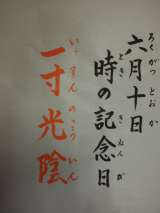 六月十日
ろくがつとおか
時の記念日
ときのきねんび
一寸光陰
いっすんのこういん